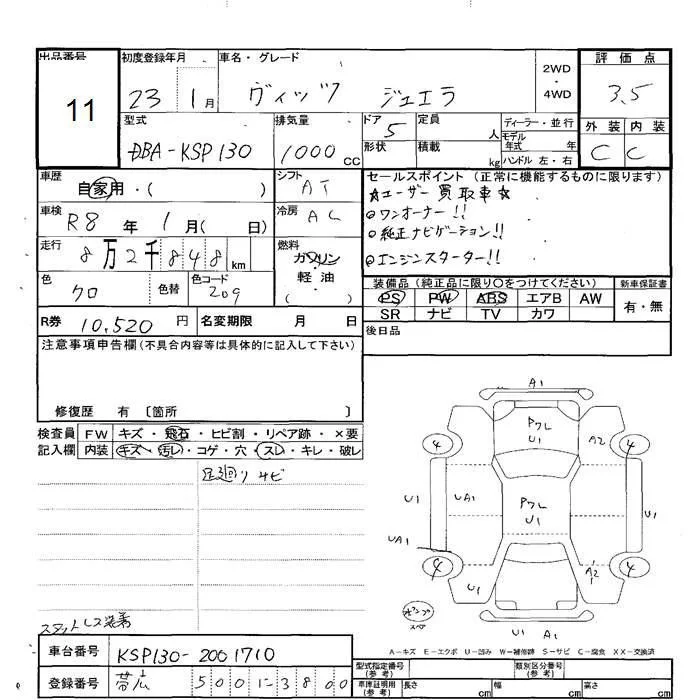 出品番号
11
初度登録年月
23 1月
車名・グレード
ヴィッツ ジュエラ
2WD
・
4WD
評価点
3.5
外装 内装
C C
型式
DBA-KSP130
排気量
1000cc
ドア
5
形状
定員
人
積載
kg
ディーラー・並行
モデル年式 年
ハンドル 左・右
車歴
自家用・( )
シフト
AT
車検
R8年 1月( 日)
冷房
AC
走行
8万2千848km
燃料
ガソリン
軽・油
( )
色
クロ
色替
色コード
209
R券 10,520円
名変期限 月 日
セールスポイント (正常に機能するものに限ります)
☆ユーザー買取車☆
◎ワンオーナー!!
◎純正ナビゲーション!!
◎エンジンスターター!!
装備品 (純正品に限り○をつけてください)
PS PW ABS エアB AW
SR ナビ TV カワ
新車保証書
有・無
後日品
注意事項申告欄(不具合内容等は具体的に記入して下さい)
修復歴 有 〔箇所 〕
検査員記入欄
FW キズ・飛石・ヒビ割・リペア跡・×要
内装 キズ・汚レ・コゲ・穴・スレ・キレ・破レ
足廻りサビ
スタットレス装着
A1
P7L
U1
A2
4
4
U1
UA1
P7L
U1
U1
UA1
4
4
A2
U1
U1 A1
A-キズ E-エクボ U-凹み W-補修跡 S-サビ C-腐食 XX-交換済
車台番号 KSP130-2001710
登録番号 帯広 500 3800
型式指定番号(参考)
類別区分番号(参考)
車庫証明用(参考)
長さ cm 幅 cm 高さ cm